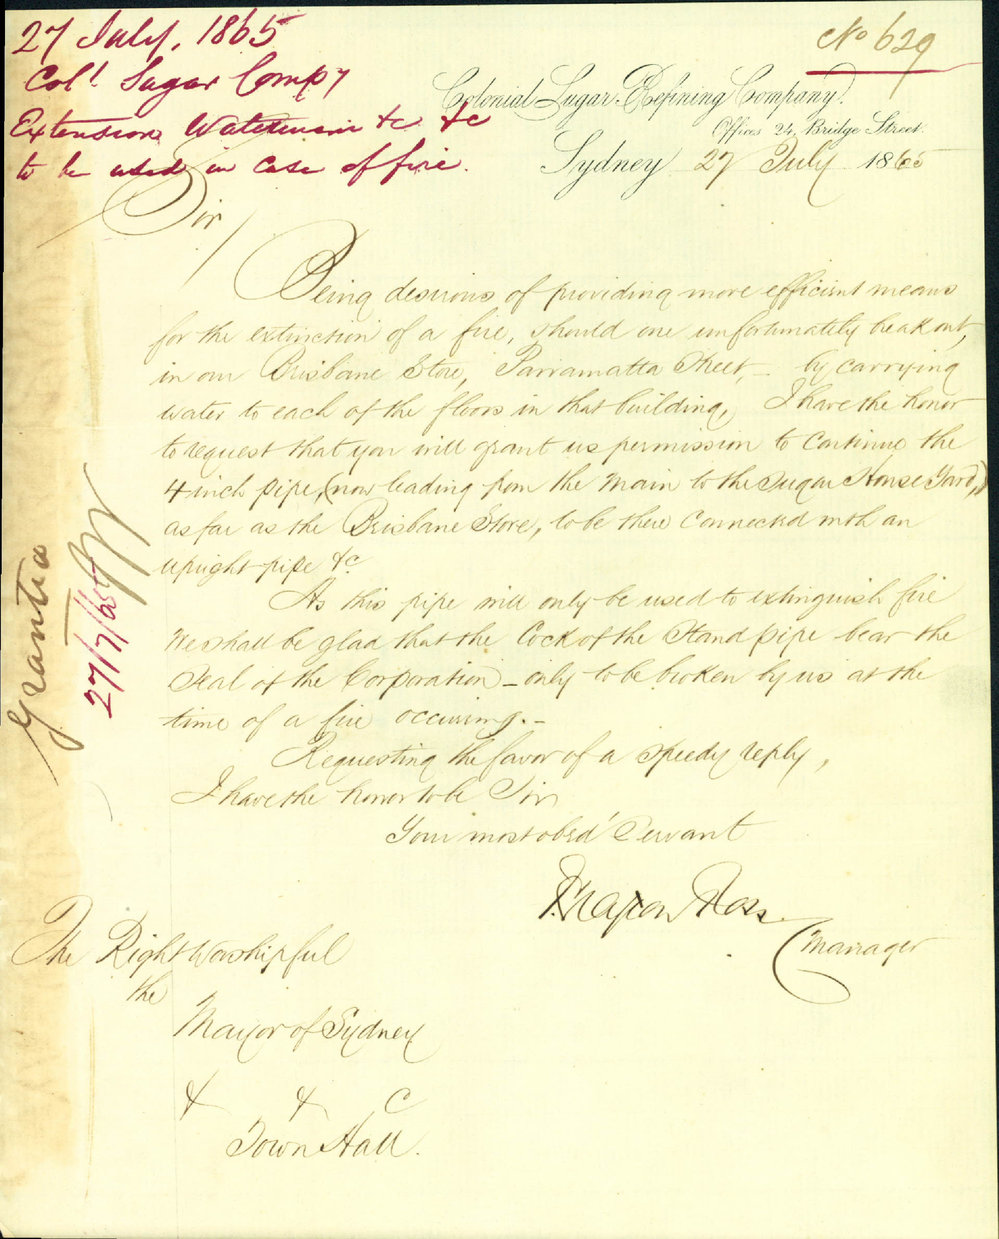 27 July, 1865
Col! Sugar Compy
Extension Watermain &c &c
to be used in case of fire.
No 629
Colonial Sugar Refining Company.
Offices 24, Bridge Street.
Sydney 27 July 1865
Sir
Being desirous of providing more efficient means
for the extinction of a fire, should one unfortunately break out,
in our Brisbane Store, Parramatta Street, - by carrying
water to each of the floors in that building, I have the honor
to request that you will grant us permission to continue the
4 inch pipe, (now leading from the Main to the Sugar House Yard,)
as far as the Brisbane Store, to be there connected with an
upright pipe &c.
As this pipe will only be used to extinguish fire
We shall be glad that the Cock of the Stand pipe bear the
Seal of the Corporation - only to be broken by us at the
time of a fire occuring. -
Requesting the favor of a speedy reply,
I have the honor to be Sir
Your most obed' Servant
Grafton Ross
Manager
The Right Worshipful
the
Mayor of Sydney
& & C
Town Hall.
Granted
27/7/65